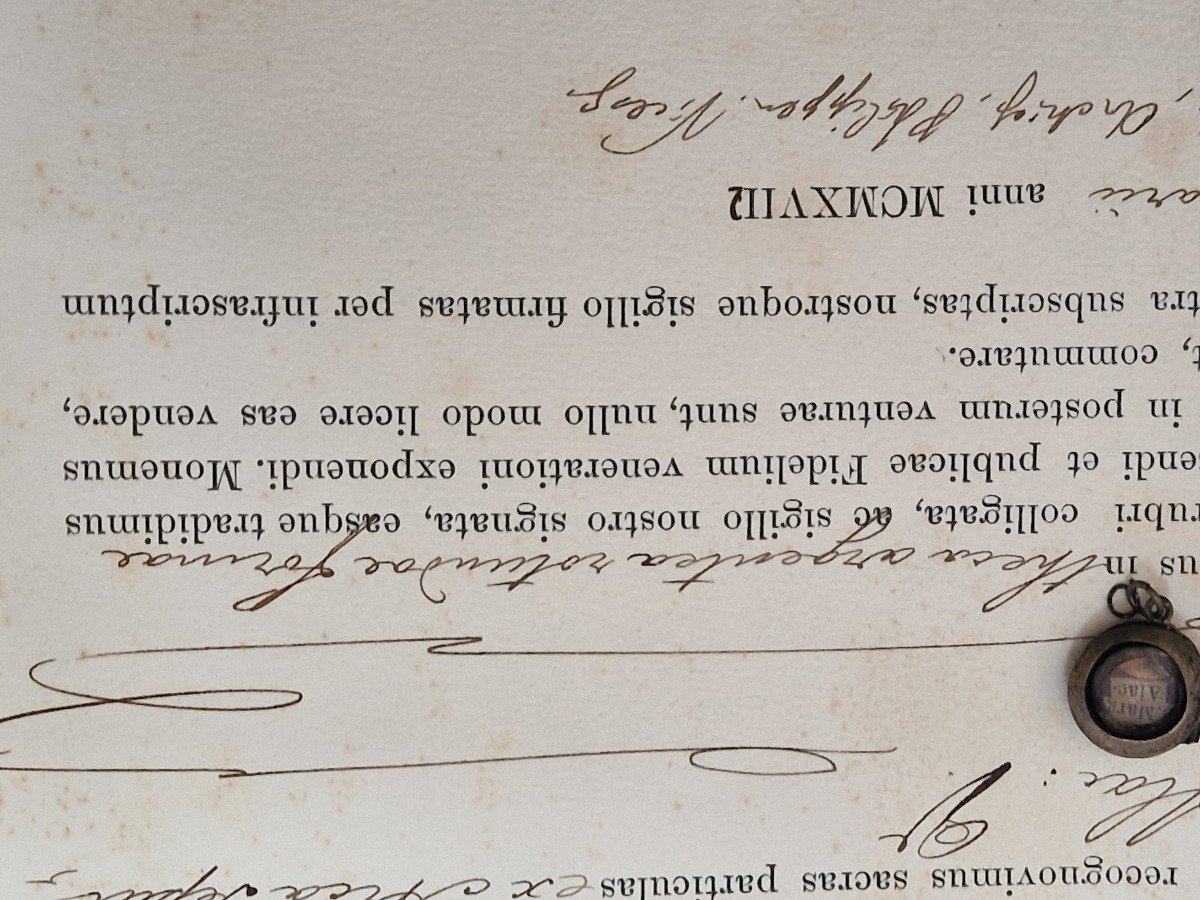 recognovimus sacras particulas ex
Alac:
us in theca argentea rotundae formae
rubri colligata, ac sigillo nostro signata, easque tradidimus
endi et publicae Fidelium venerationi exponendi. Monemus
in posterum venturae sunt, nullo modo licere eas vendere,
t, commutare.
tra subscriptas, nostroque sigillo firmatas per infrascriptum
arii anni MCMXVII
, Archiep. Philippen. Vicesg.
S. Marg.
Alac.